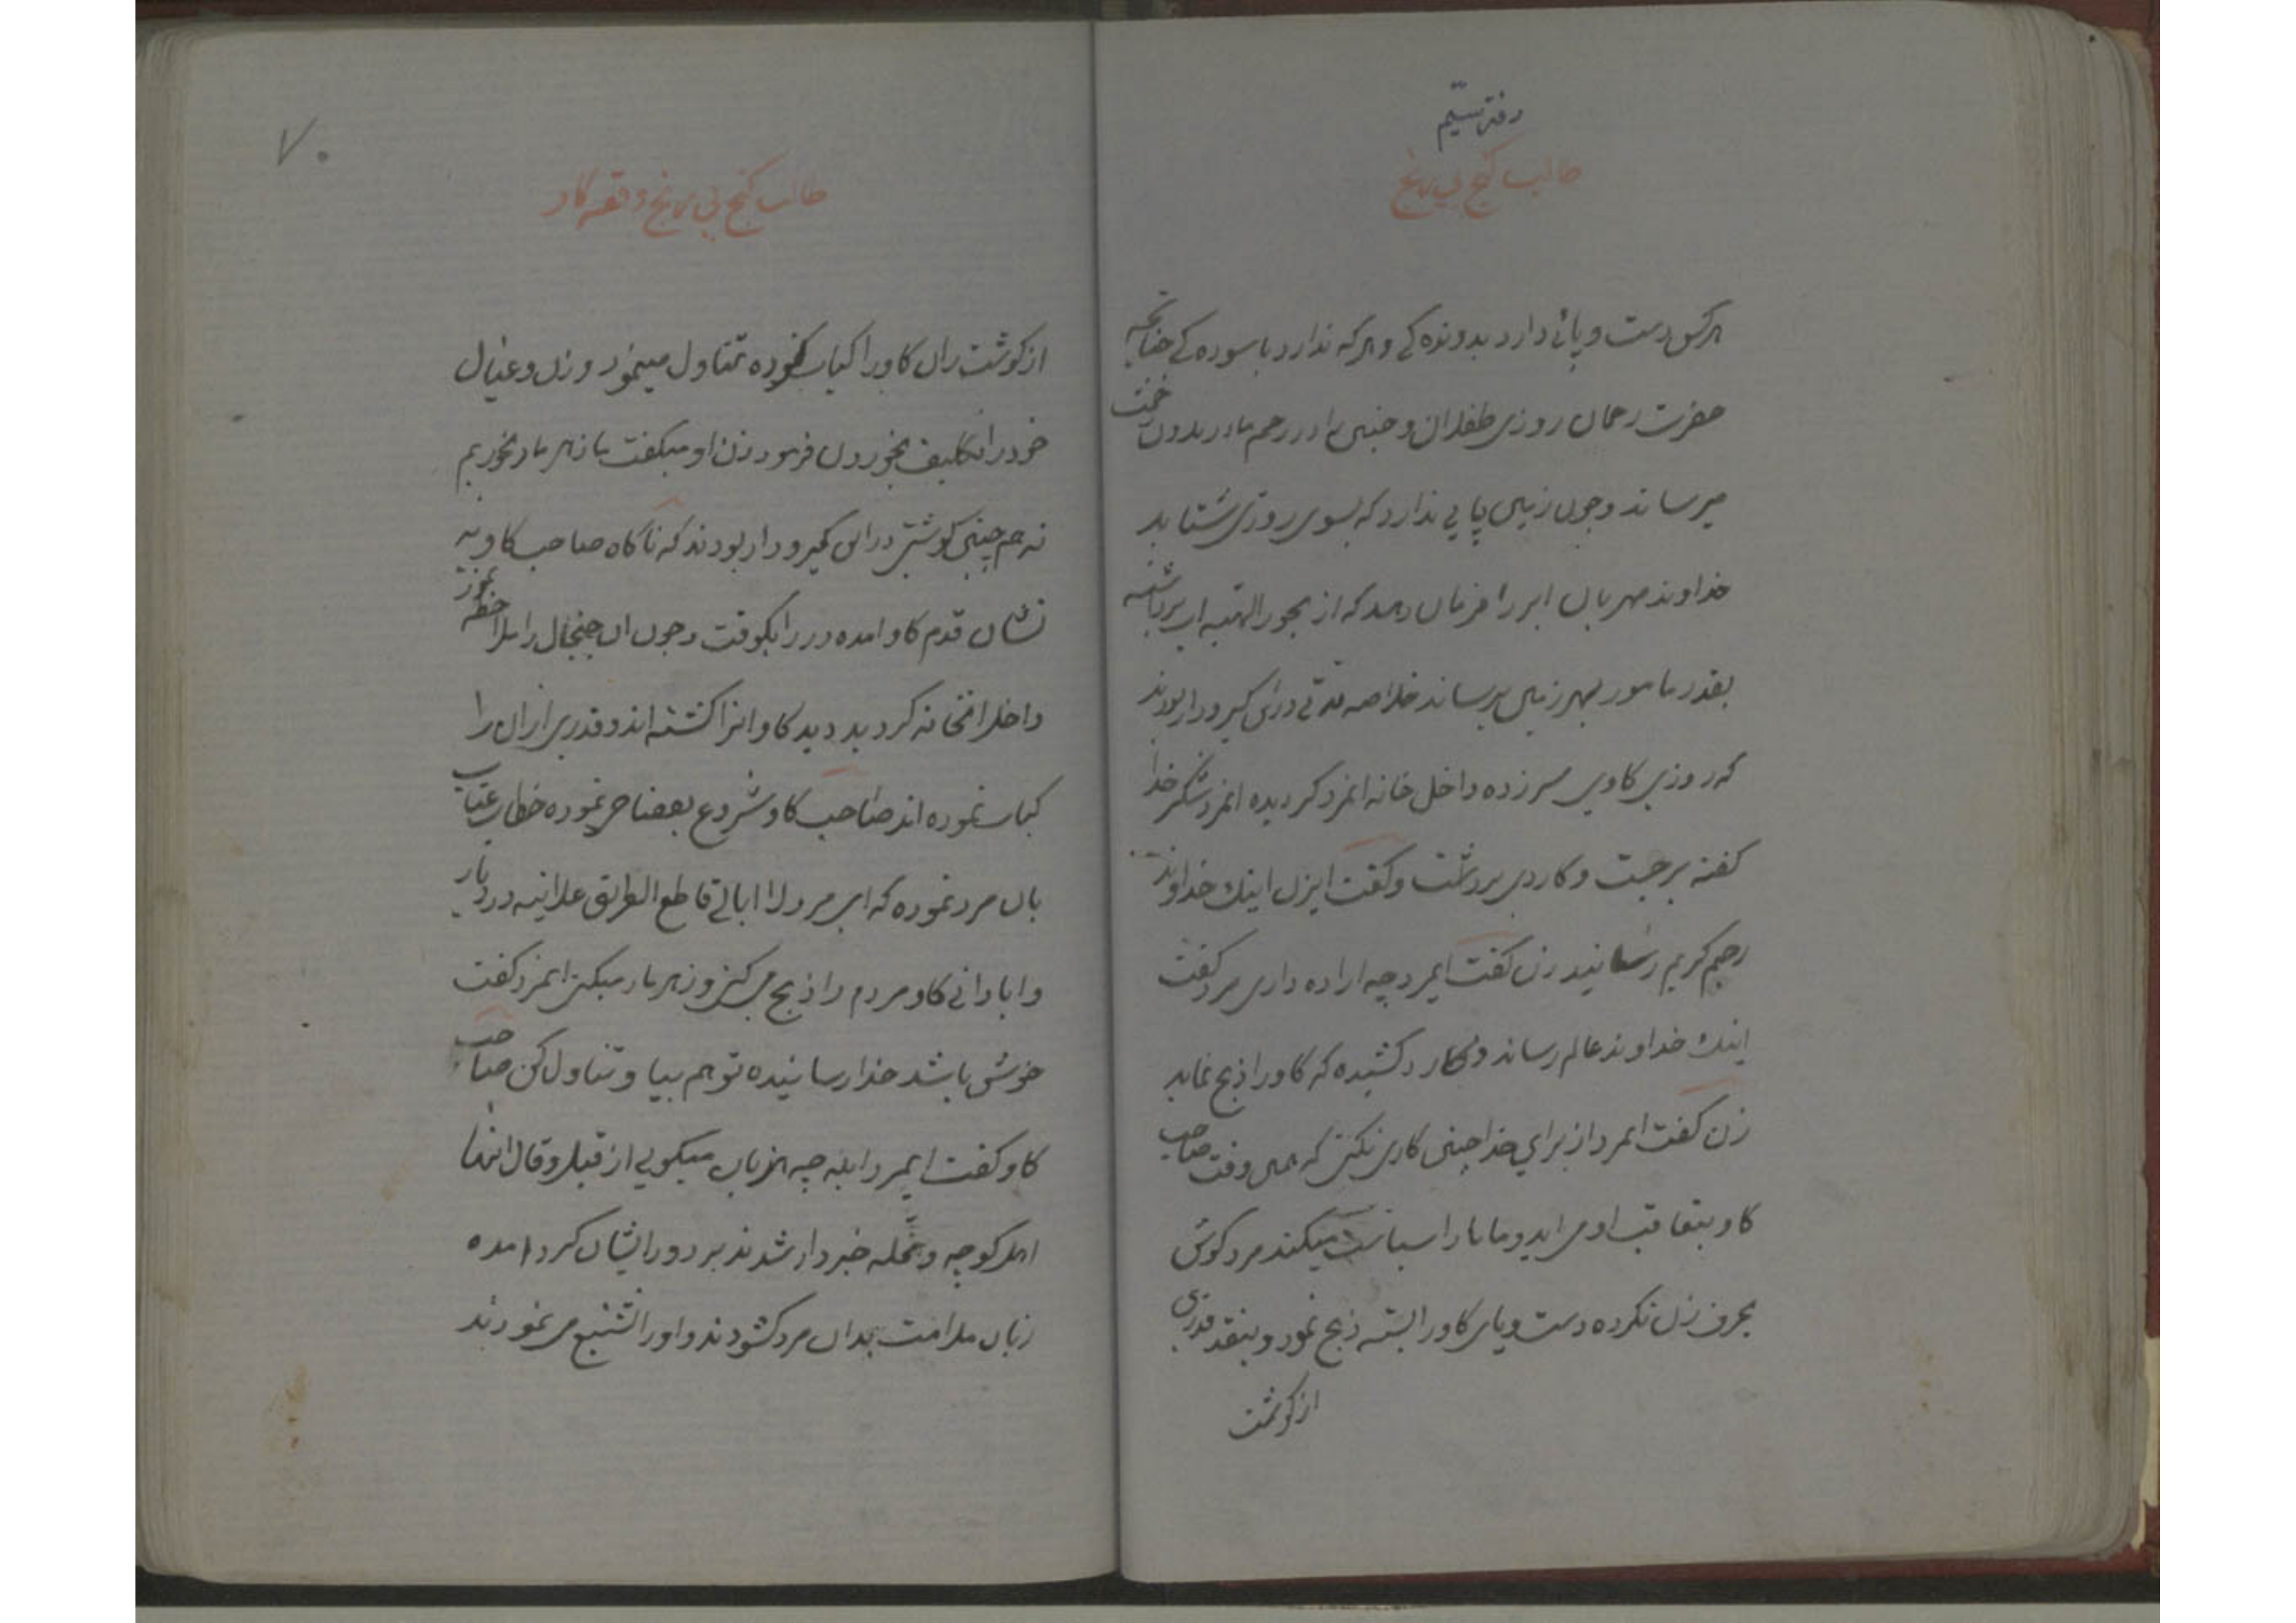 دفتر سیّم
طالب گنج بی رنج
هرکس دست و پائی دارد بدونده کی و هر که ندارد باسوده کے چنانچه
حضرت رحمان روزی طفلان و جنین را در رحم مادر بدون
میرساند و چون زمین پایی ندارد که بسوی روزی شتابد
خداوند مهربان ابر را فرمان دهد که از بحور الهیه اب برداشته
بقدر مامور بهر زمین برساند خلاصه مدتی در این گیر و دار بودند
که روزی کاوی سرزده داخل خانه انمرد کردیده انمرد شکر خدا
کفته برجست و کاردی برداشت و کفت ایزن اینك خداوند
رحیم کریم رسانید زن کفت ایمرد چه اراده داری مرد کفت
اینك خداوند عالم رساند و کارد کشیده که کاو را ذبح نماید
زن کفت ایمرد از برای خدا چنین کاری نکنی که همین وقت صاحب
کاو بتعاقب او می اید و ما را سیاست میکند مرد کوش
بحرف زن نکرده دست و پای کاو را بسته ذبح نمود و بنقد قدری
از کوشت
۷۰
طالب گنج بی رنج و قصه کاو
از کوشت ران کاو را کباب نموده تناول مینمود و زن و عیال
خود را تکلیف بخوردن فرمود زن او میکفت ما زهر مار بخوریم
نه هم چنین کوشتی در این گیر و دار بودند که ناکاه صاحب کاو به
نشان قدم کاو امده در را بکوفت و چون ان جنجال را ملاحظه نمود
داخل انخانه کردید دید کاو انرا کشته اند و قدری از ان را
کباب نموده اند صاحب کاو شروع بفضاحی نموده خطاب عتاب
بان مرد نموده که ای مرد لا ابالی قاطع الطریق علانیه در دیار
و ابادانی کاو مردم را ذبح می کنی و زهر مار میکنی ایمرد کفت
خوش باشد خدا رسانیده تو هم بیا و تناول کن صاحب
کاو کفت ایمرد ابله چه هزیان میکویی از قیل و قال انها
اهل کوچه و محله خبردار شدند بر دور ایشان کرد امده
زبان ملامت بدان مرد کشودند و او را تشنیع می نمودند